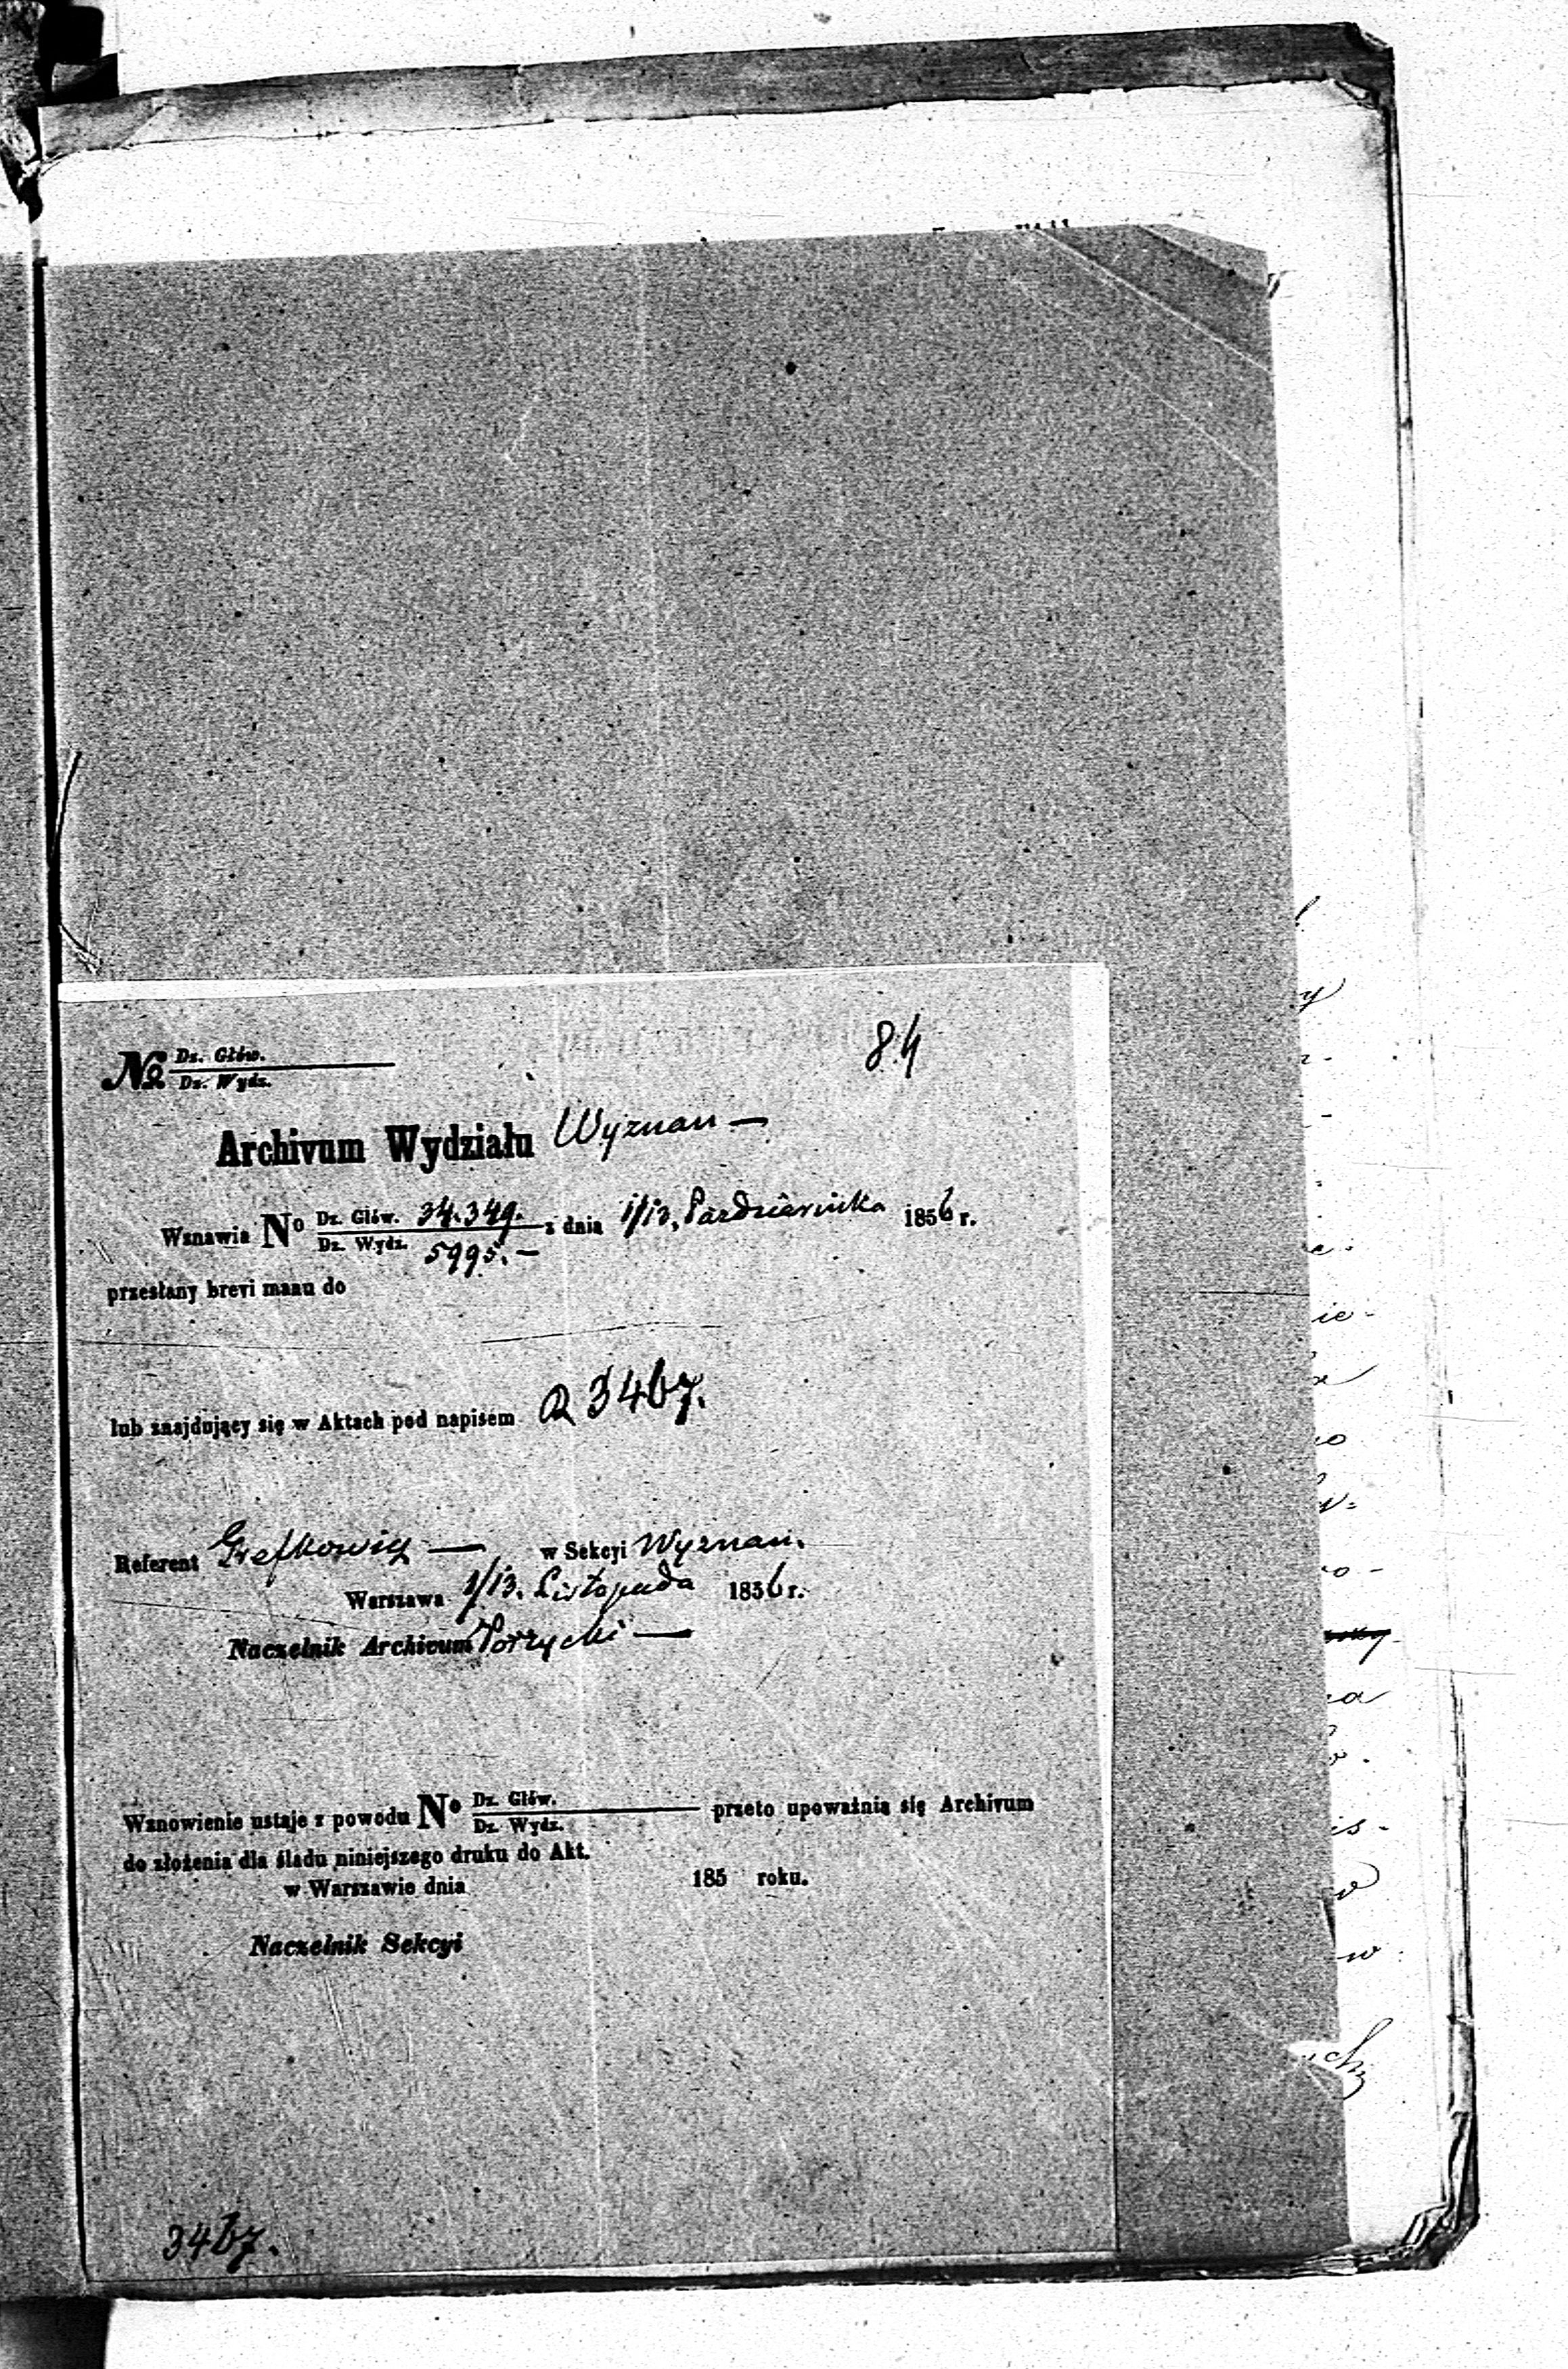 84
№ Dz. Głów.
Dz. Wydz.
Archivum Wydziału Wyznan —
Wznawia No Dz. Głów. 34.349. z dnia 1/13, Października 1856 r.
Dz. Wydz. 5995. —
przesłany brevi manu do
lub znajdujący się w Aktach pod napisem Q 3467.
Referent — w Sekcyi Wyznań.
Warszawa 1/13. Listopada 1856 r.
Naczelnik Archivum —
Wznowienie ustaje z powodu No Dz. Głów. przeto upoważnia się Archivum
Dz. Wydz.
do złożenia dla śladu niniejszego druku do Akt.
w Warszawie dnia 185 roku.
Naczelnik Sekcyi
3467.